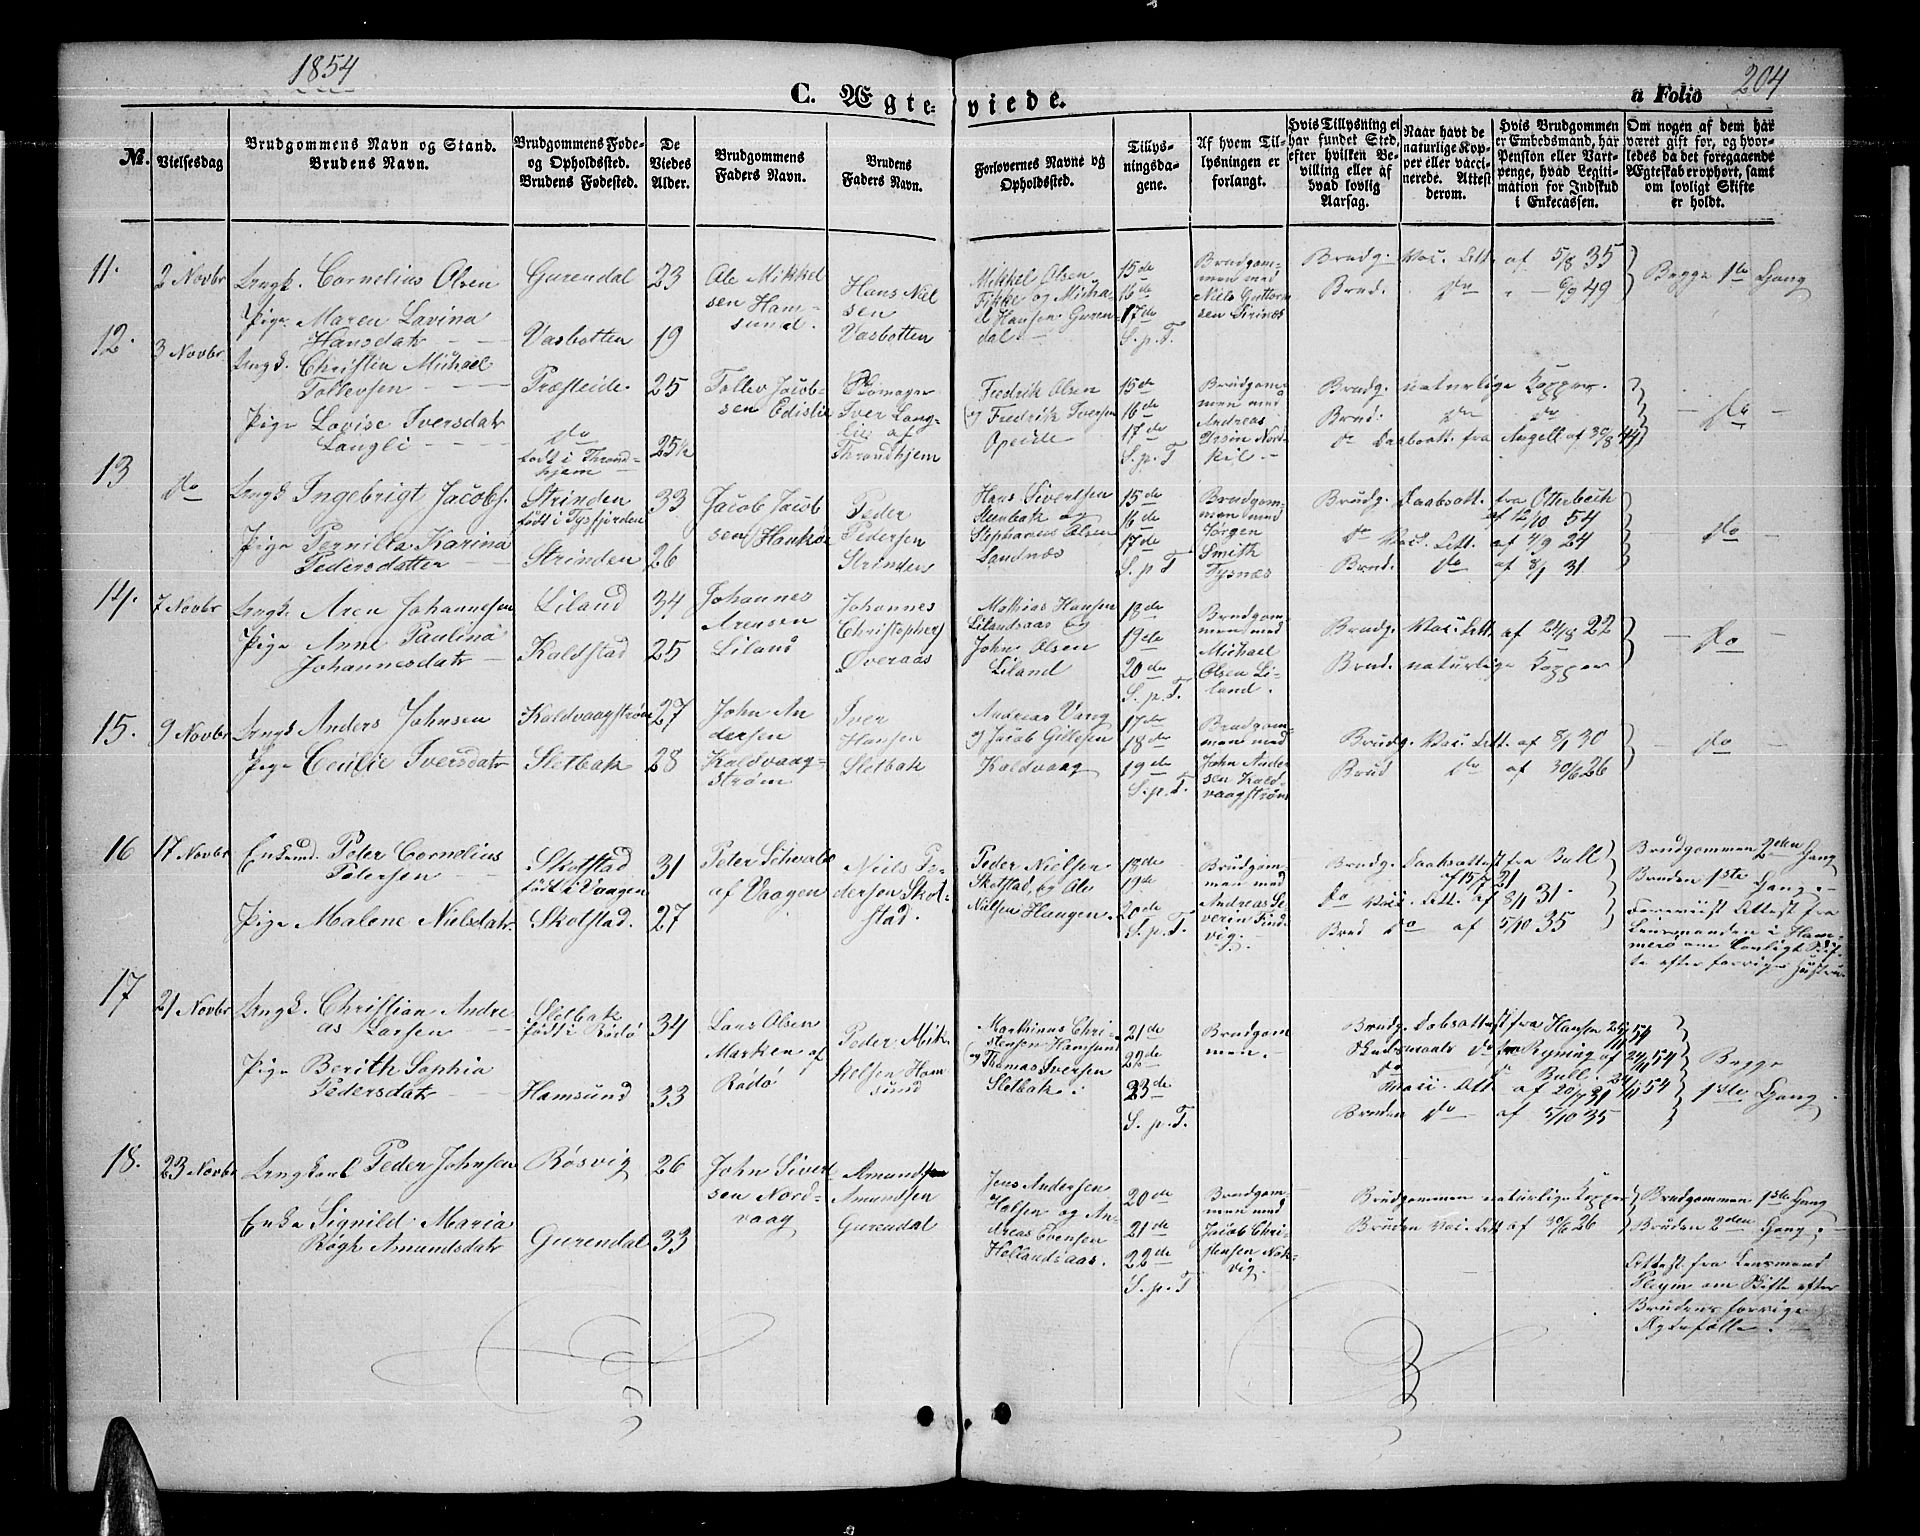 1854
204
C. Ægteviede.
a Folio
No.
Vielsesdag
Brudgommens Navn og Stand.
Brudens Navn.
Brudgommens Føde-
og Opholdssted.
Brudens Fødested.
De
Viedes
Alder.
Brudgommens
Faders Navn.
Brudens
Faders Navn.
Forlovernes Navne og
Opholdssted.
Tillys-
ningsda-
gene.
Af hvem Til-
lysningen er
forlangt.
Hvis Tillysning ei
har fundet Sted,
efter hvilken Be-
villing eller af
hvad lovlig
Aarsag.
Naar havt de
naturlige Kop-
per eller vacci-
nerede. Attest
derom.
Hvis Brudgommen
er Embedsmand, har
Pension eller Vart-
penge, hvad Legiti-
mation for Indskud
i Enkecassen.
Om nogen af dem har
været gift før, og hvor-
ledes da det foregaaende
Ægteskab er ophørt, samt
om lovligt Skifte
er holdt.
11.
2 Novbr
Ungk. Cornelius Olsen
Pige Maren Lovina
Hansdatr
Gurendal
Vasbotten
23
19
Ole Mikkel
sen Ham-
sund.
Hans Niel
sen
Vasbotten
Mikkel Olsen
Fikke og Micha-
el Hansen Guren-
dal
15de
16de
17de
S. p. T.
Brudgom-
men med
Niels Guttorm
sen Trinæs
Brudg. Vac. Att. af 5/8 35
Brud. do " - 6/9 49
Begge 1ste Gang
12.
3 Novbr
Ungk. Christen Michael
Tollevsen
Pige Lovise Iversdatr
Langli
Præsteide.
do
født i Thrond-
hjem
25
25½
Tollev Jacob-
sen Edislie
Iver Lang-
lie af
Throndhjem
Fredrik Olsen
og Fredrik Iversen
Opeide
15de
16de
17de
S. p. T
Brudgom-
men med
Andreas
Ursin Nord-
kil.
Brudg. naturlige Kopper.
Brud: do do
do Daabsatt. fra Angell af 30/8 44
do
13
do
Ungk Ingebrigt Jacobs.
Pige Pernilla Karina
Pedersdatter
Strinden
født i Tysfjorden
Strinden
33
26
Jacob Jacob
sen Haukø
Peder
Pedersen
Strinden
Hans Sivertsen
Steenbak og
Stephanus Olsen
Sandnæs
15de
16de
17de
S. p. T
Brudgom-
men med
Jørgen
Smith
Tysnæs
Brudg. Daabsatt. fra Otterbech
af 12/10 54
do Vac. Att. af 4/9 24
Brud. do af 8/1 31.
do
14.
7 Novbr
Ungk. Aren Johannesen
Pige Anne Paulina
Johannesdatr
Liland
Kaldstad
34
25
Johannes
Arensen
Liland
Johannes
Christophers
Øveraas
Mathias Hansen
Lilandsaas og
John Olsen
Liland
18de
19de
20de
S. p. T.
Brudgom-
men med
Michael
Olsen Li-
land.
Brudg. Vac. Att. af 24/8 22
Brud. naturlige Kopper
do
15.
9 Novbr
Ungk Anders Johnsen
Pige Cecilie Iversdatr
Kaldvaagstrøm
Sletbak
27
28
John An
dersen
Kaldvaag-
strøm
Iver
Hansen
Sletbak
Andreas Vang
og Jacob Gillesen
Kaldvaag
17de
18de
19de
S. p. T.
Brudgom-
men med
John Ander
sen Kald-
vaagstrøm
Brudg. Vac. Att. af 8/1 30
Brud do af 30/6 26
do
16
17 Novbr
Enkemd. Peter Cornelius
Petersen
Pige Malene Nielsdatr.
Skotstad
født i Vaagen
Skotstad.
31
27
Peter Schvabe
af Vaagen
Niels Pe-
dersen Skot-
stad.
Peder Nielsen
Skotstad, og Ole
Nielsen Haugen.
18de
19de
20de
S. p. T.
Brudgom-
men med
Andreas Se-
verin Find-
vig.
Brudg. Daabsattest fra Bull
af 15/7 21
do Vac. Att. af 8/1 31.
Brud do af 5/10 35
Brudgommen 2den Gang
Bruden 1ste Gang.
Foreviist Attest fra
Lensmanden i Ham-
merø om lovligt Skif-
te efter forrige Hustru
17
21 Novbr
Ungk. Christian Andre
as Larsen
Pige Berith Sophia
Pedersdatr
Sletbak
født i Rødø
Hamsund
34
33
Lars Olsen
Marken af
Rødø
Peder Mik
kelsen Ham
sund
Marthinus Chri-
stensen Hamsund
og Thomas Iversen
Sletbak.
21de
22de
23de
S. p. T.
Brudgom
men.
Brudg. Dabsattest fra Hansen
Skudsmaals do fra Ryning af 24/11 54
do do Bull. 24/10 54
Vacc. Att af 20/7 31
Bruden do af 5/10 35
Begge
1ste Gang
18.
23 Novbr
Ungkarl Peder Johnsen
Enke Signild Maria
Røgh Amundsdatr
Røsvig
Gurendal
26
33
John Sivert
sen Nord-
vaag
Amundsen
Gurendal
Jens Andersen
Halsen og An-
dreas Evensen
Hellandsaas.
20de
21de
22de
S. p. T
Brudgom-
men med
Jacob Chri-
stensen Nak-
vig.
Brudgommen naturlige Kopper
Bruden Vac. Att af 30/6 26
Brudgommen 1ste Gang
Bruden 2den Gang;
Attest fra Lensmand
Pleym om Skifte efter
Brudens forrige
Ægtefælle.